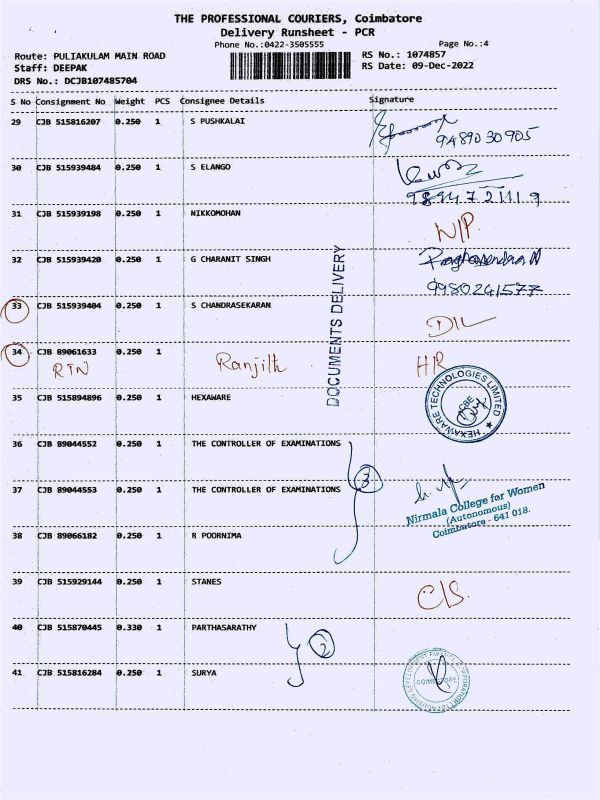 THE PROFESSIONAL COURIERS, Coimbatore
Delivery Runsheet - PCR
Phone No.:0422-3505555
Page No.:4
Route: PULIAKULAM MAIN ROAD
RS No.: 1074857
Staff: DEEPAK
RS Date: 09-Dec-2022
DRS No.: DCJB107485704
S No Consignment No Weight PCS Consignee Details Signature
29 CJB 515816207 0.250 1 S PUSHKALAI
9489030905
30 CJB 515939484 0.250 1 S ELANGO
9894721119
31 CJB 515939198 0.250 1 NIKKOMOHAN
N/P
32 CJB 515939420 0.250 1 G CHARANIT SINGH
9980241577
DOCUMENTS DELIVERY
33 CJB 515939404 0.250 1 S CHANDRASEKARAN
D/L
34 CJB 89061633 0.250 1
RTN Ranjith HR
35 CJB 515894896 0.250 1 HEXAWARE
HEXAWARE TECHNOLOGIES LIMITED
CBE
36 CJB 89044552 0.250 1 THE CONTROLLER OF EXAMINATIONS
3
37 CJB 89044553 0.250 1 THE CONTROLLER OF EXAMINATIONS
Nirmala College for Women
(Autonomous)
Coimbatore - 641 018.
38 CJB 89066182 0.250 1 R POORNIMA
39 CJB 515929144 0.250 1 STANES
C/S
40 CJB 515870445 0.330 1 PARTHASARATHY
2
41 CJB 515816284 0.250 1 SURYA
COIMBATORE